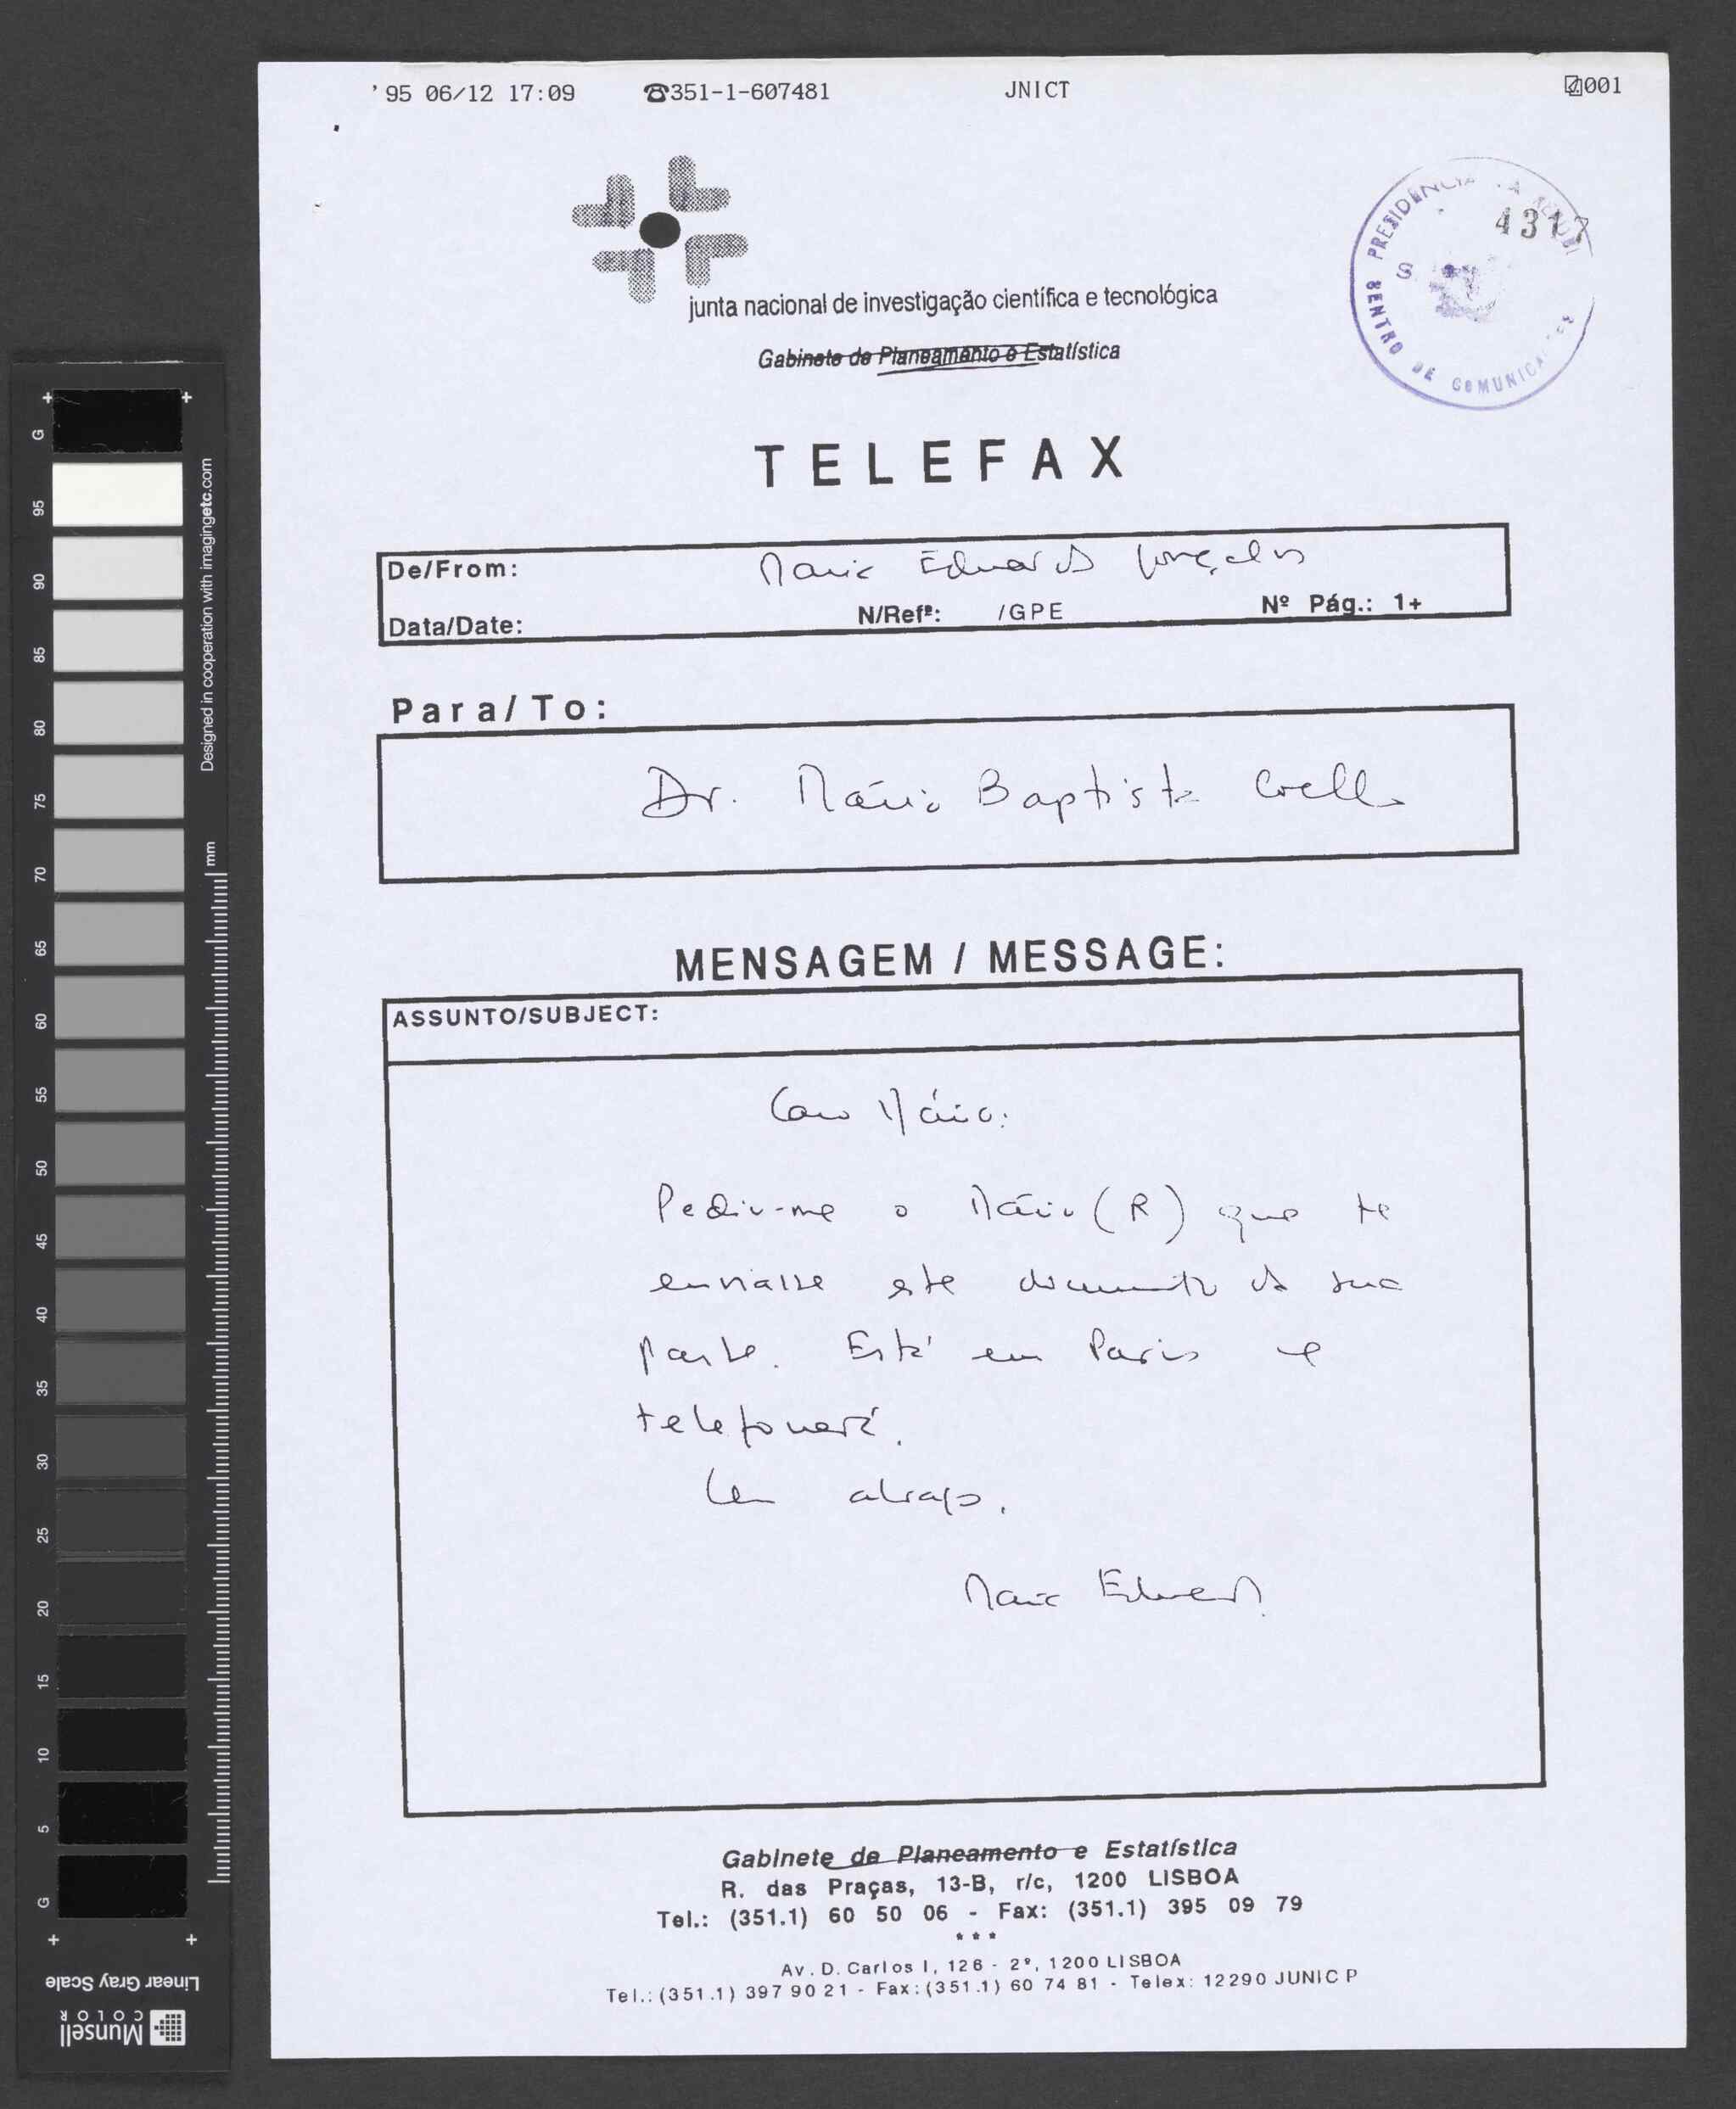 '95 06/12 17:09 ☎351-1-607481 JNICT 001
PRESIDÊNCIA DA
4317
S
CENTRO DE COMUNICA
junta nacional de investigação científica e tecnológica
Gabinete de Planeamento e Estatística
TELEFAX
De/From: Maria Eduarda Gonçalves
Data/Date: N/Refª: /GPE Nº Pág.: 1+
Para/To:
Dr. Mário Baptista Coelho
MENSAGEM / MESSAGE:
ASSUNTO/SUBJECT:
Caro Mário:
Pediu-me o Mário (R) que te
enviasse este documento da sua
parte. Está em Paris e
telefonará.
Um abraço.
Maria Eduarda
Gabinete de Planeamento e Estatística
R. das Praças, 13-B, r/c, 1200 LISBOA
Tel.: (351.1) 60 50 06 - Fax: (351.1) 395 09 79
* * *
Av. D. Carlos I, 126 - 2º, 1200 LISBOA
Tel.: (351.1) 397 90 21 - Fax: (351.1) 60 74 81 - Telex: 12290 JUNIC P
G 95 90 85 80 75 70 65 60 55 50 45 40 35 30 25 20 15 10 5 G
Designed in cooperation with imagingetc.com
mm
Linear Gray Scale
Munsell
COLOR